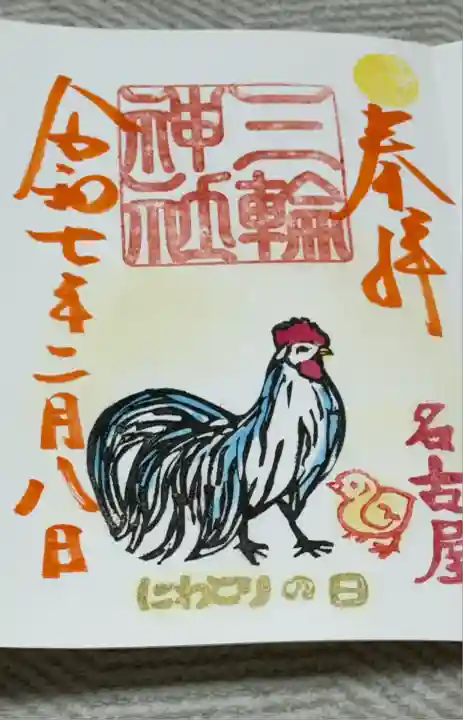 奉拝
三輪
神社
令和七年二月八日
名古屋
にわとりの日